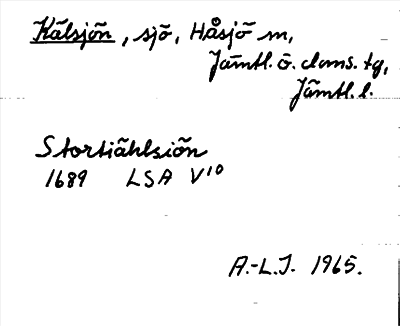 Kälsjön, sjö, Håsjö sn,
Jämtl. ö. doms. tg,
Jämtl. l.
Stortiählsiön
1689 LSA V10
A.-L.J. 1965.